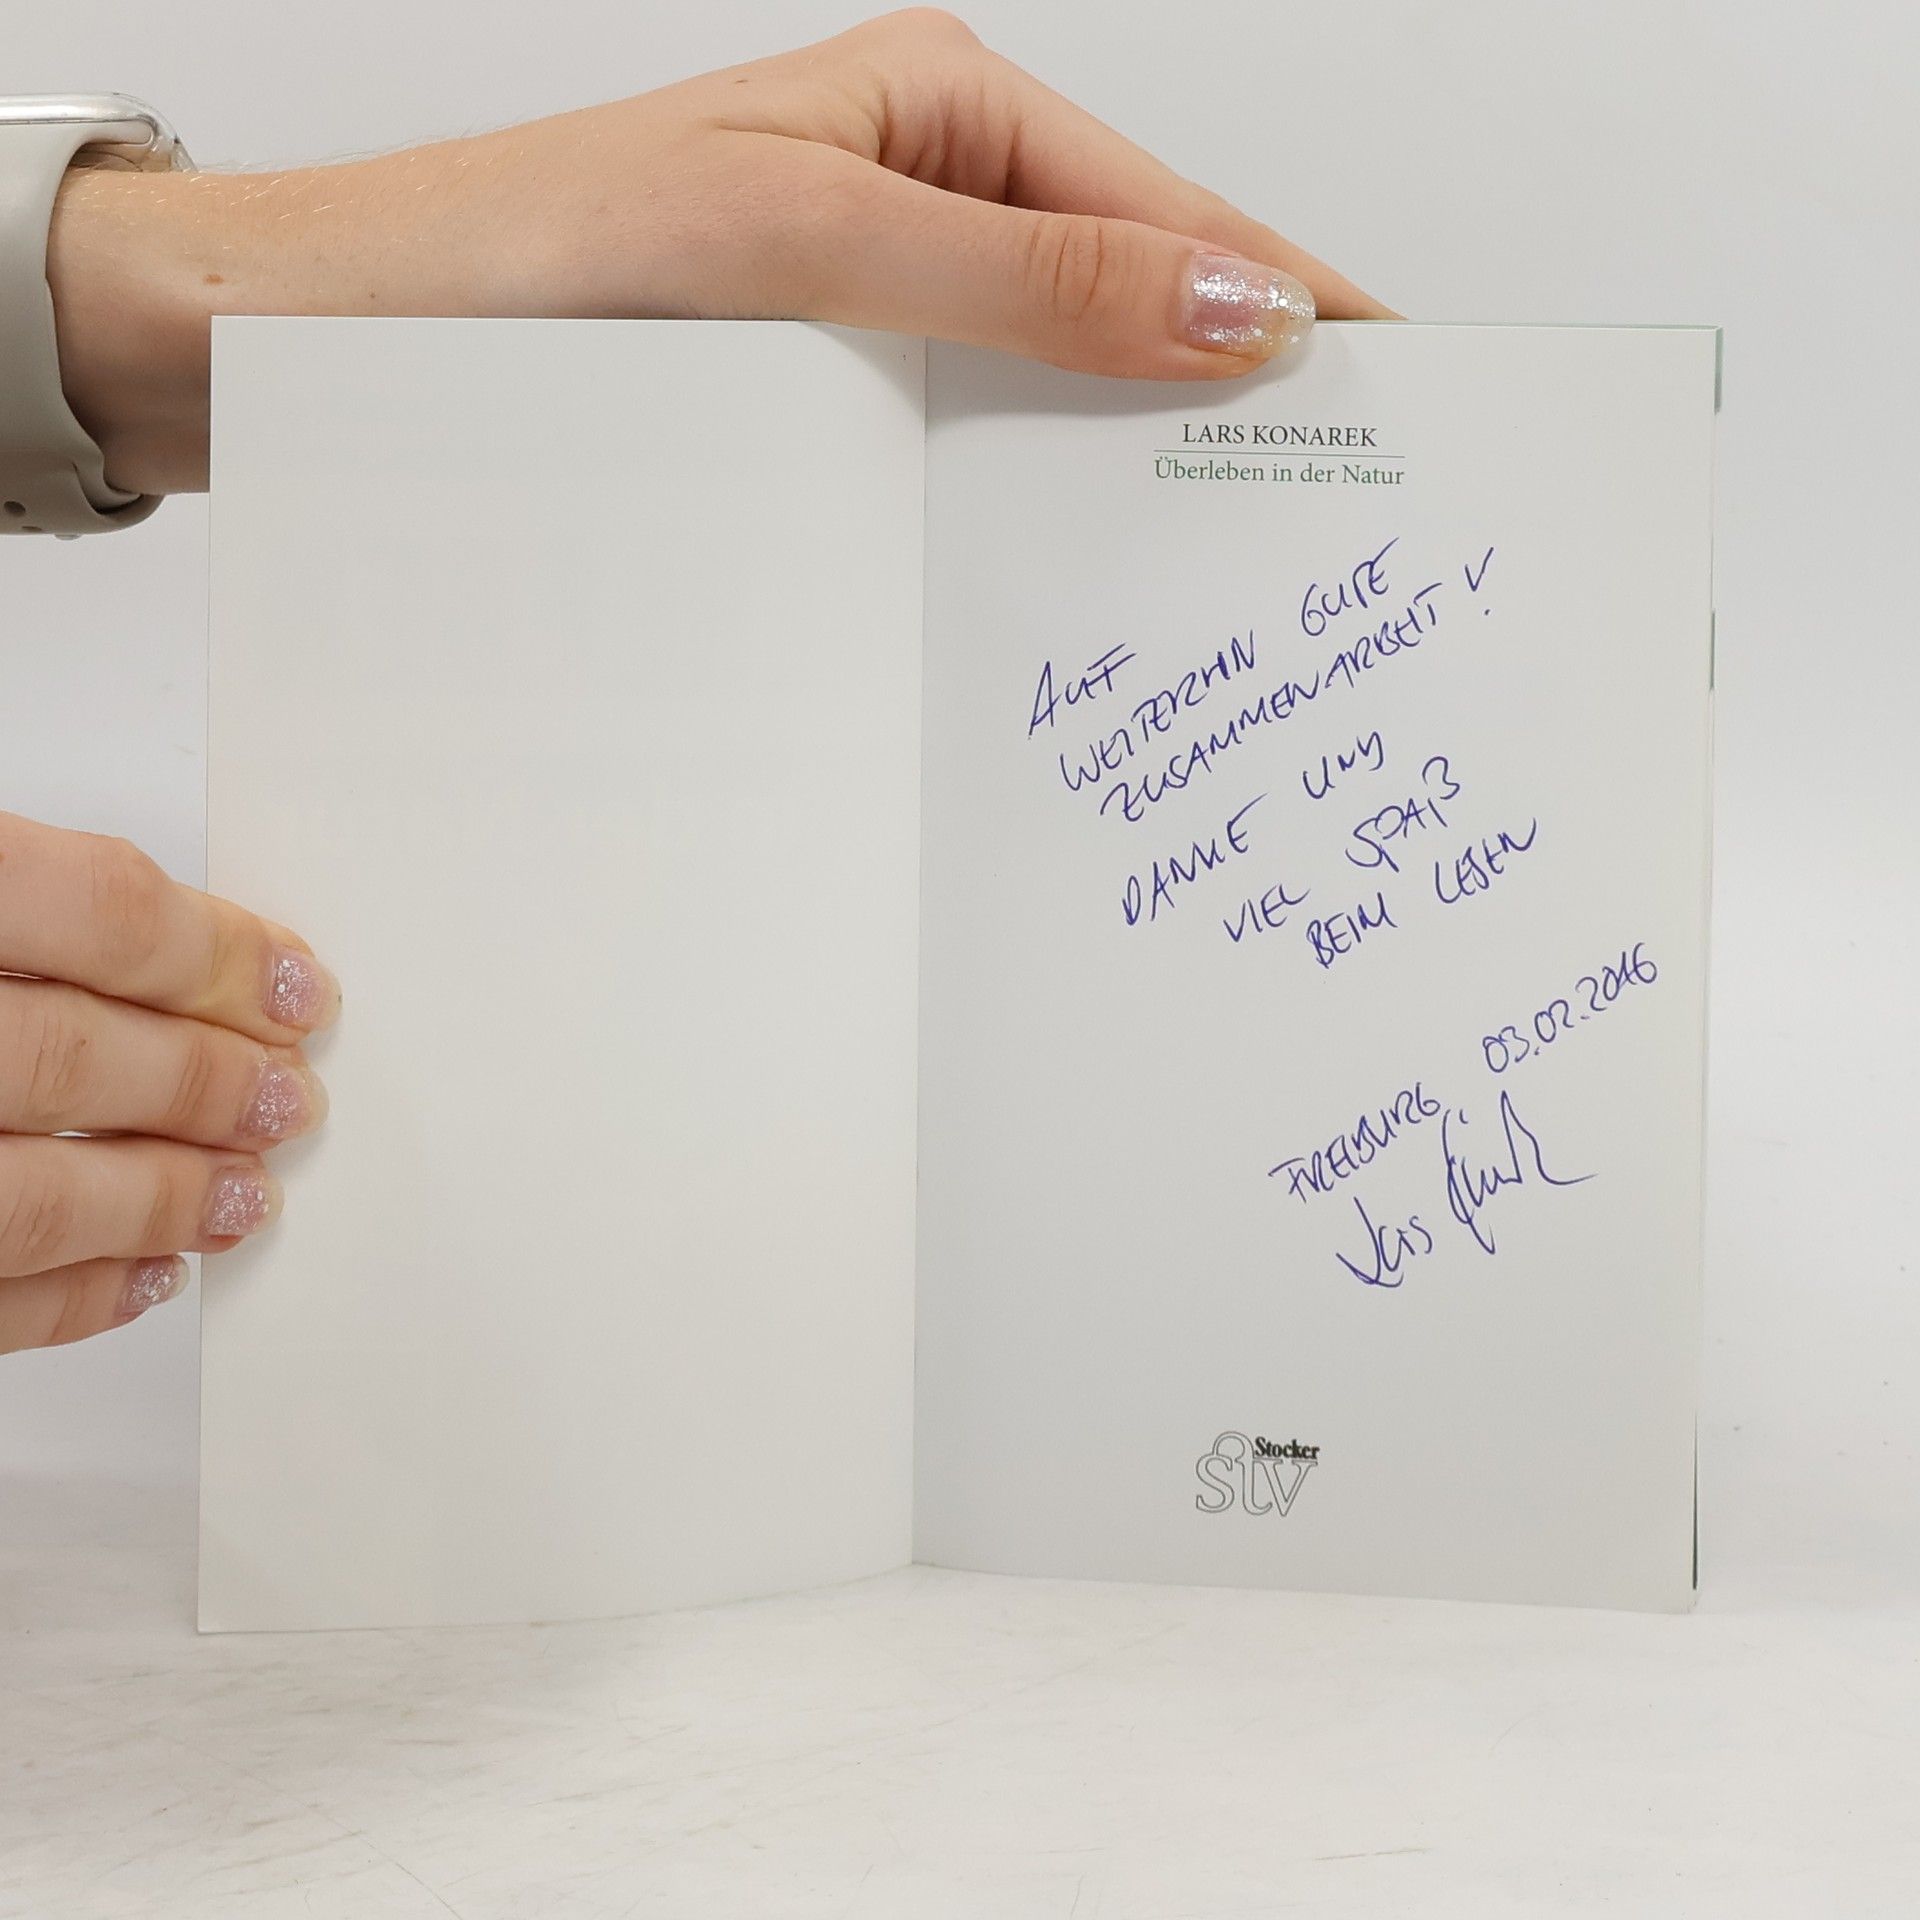 LARS KONAREK
Überleben in der Natur
AUF
WEITERHIN GUTE
ZUSAMMENARBEIT!
DANKE UND
VIEL SPAß
BEIM LESEN
FREIBURG, 03.02.2016
Lars
Stocker
stv